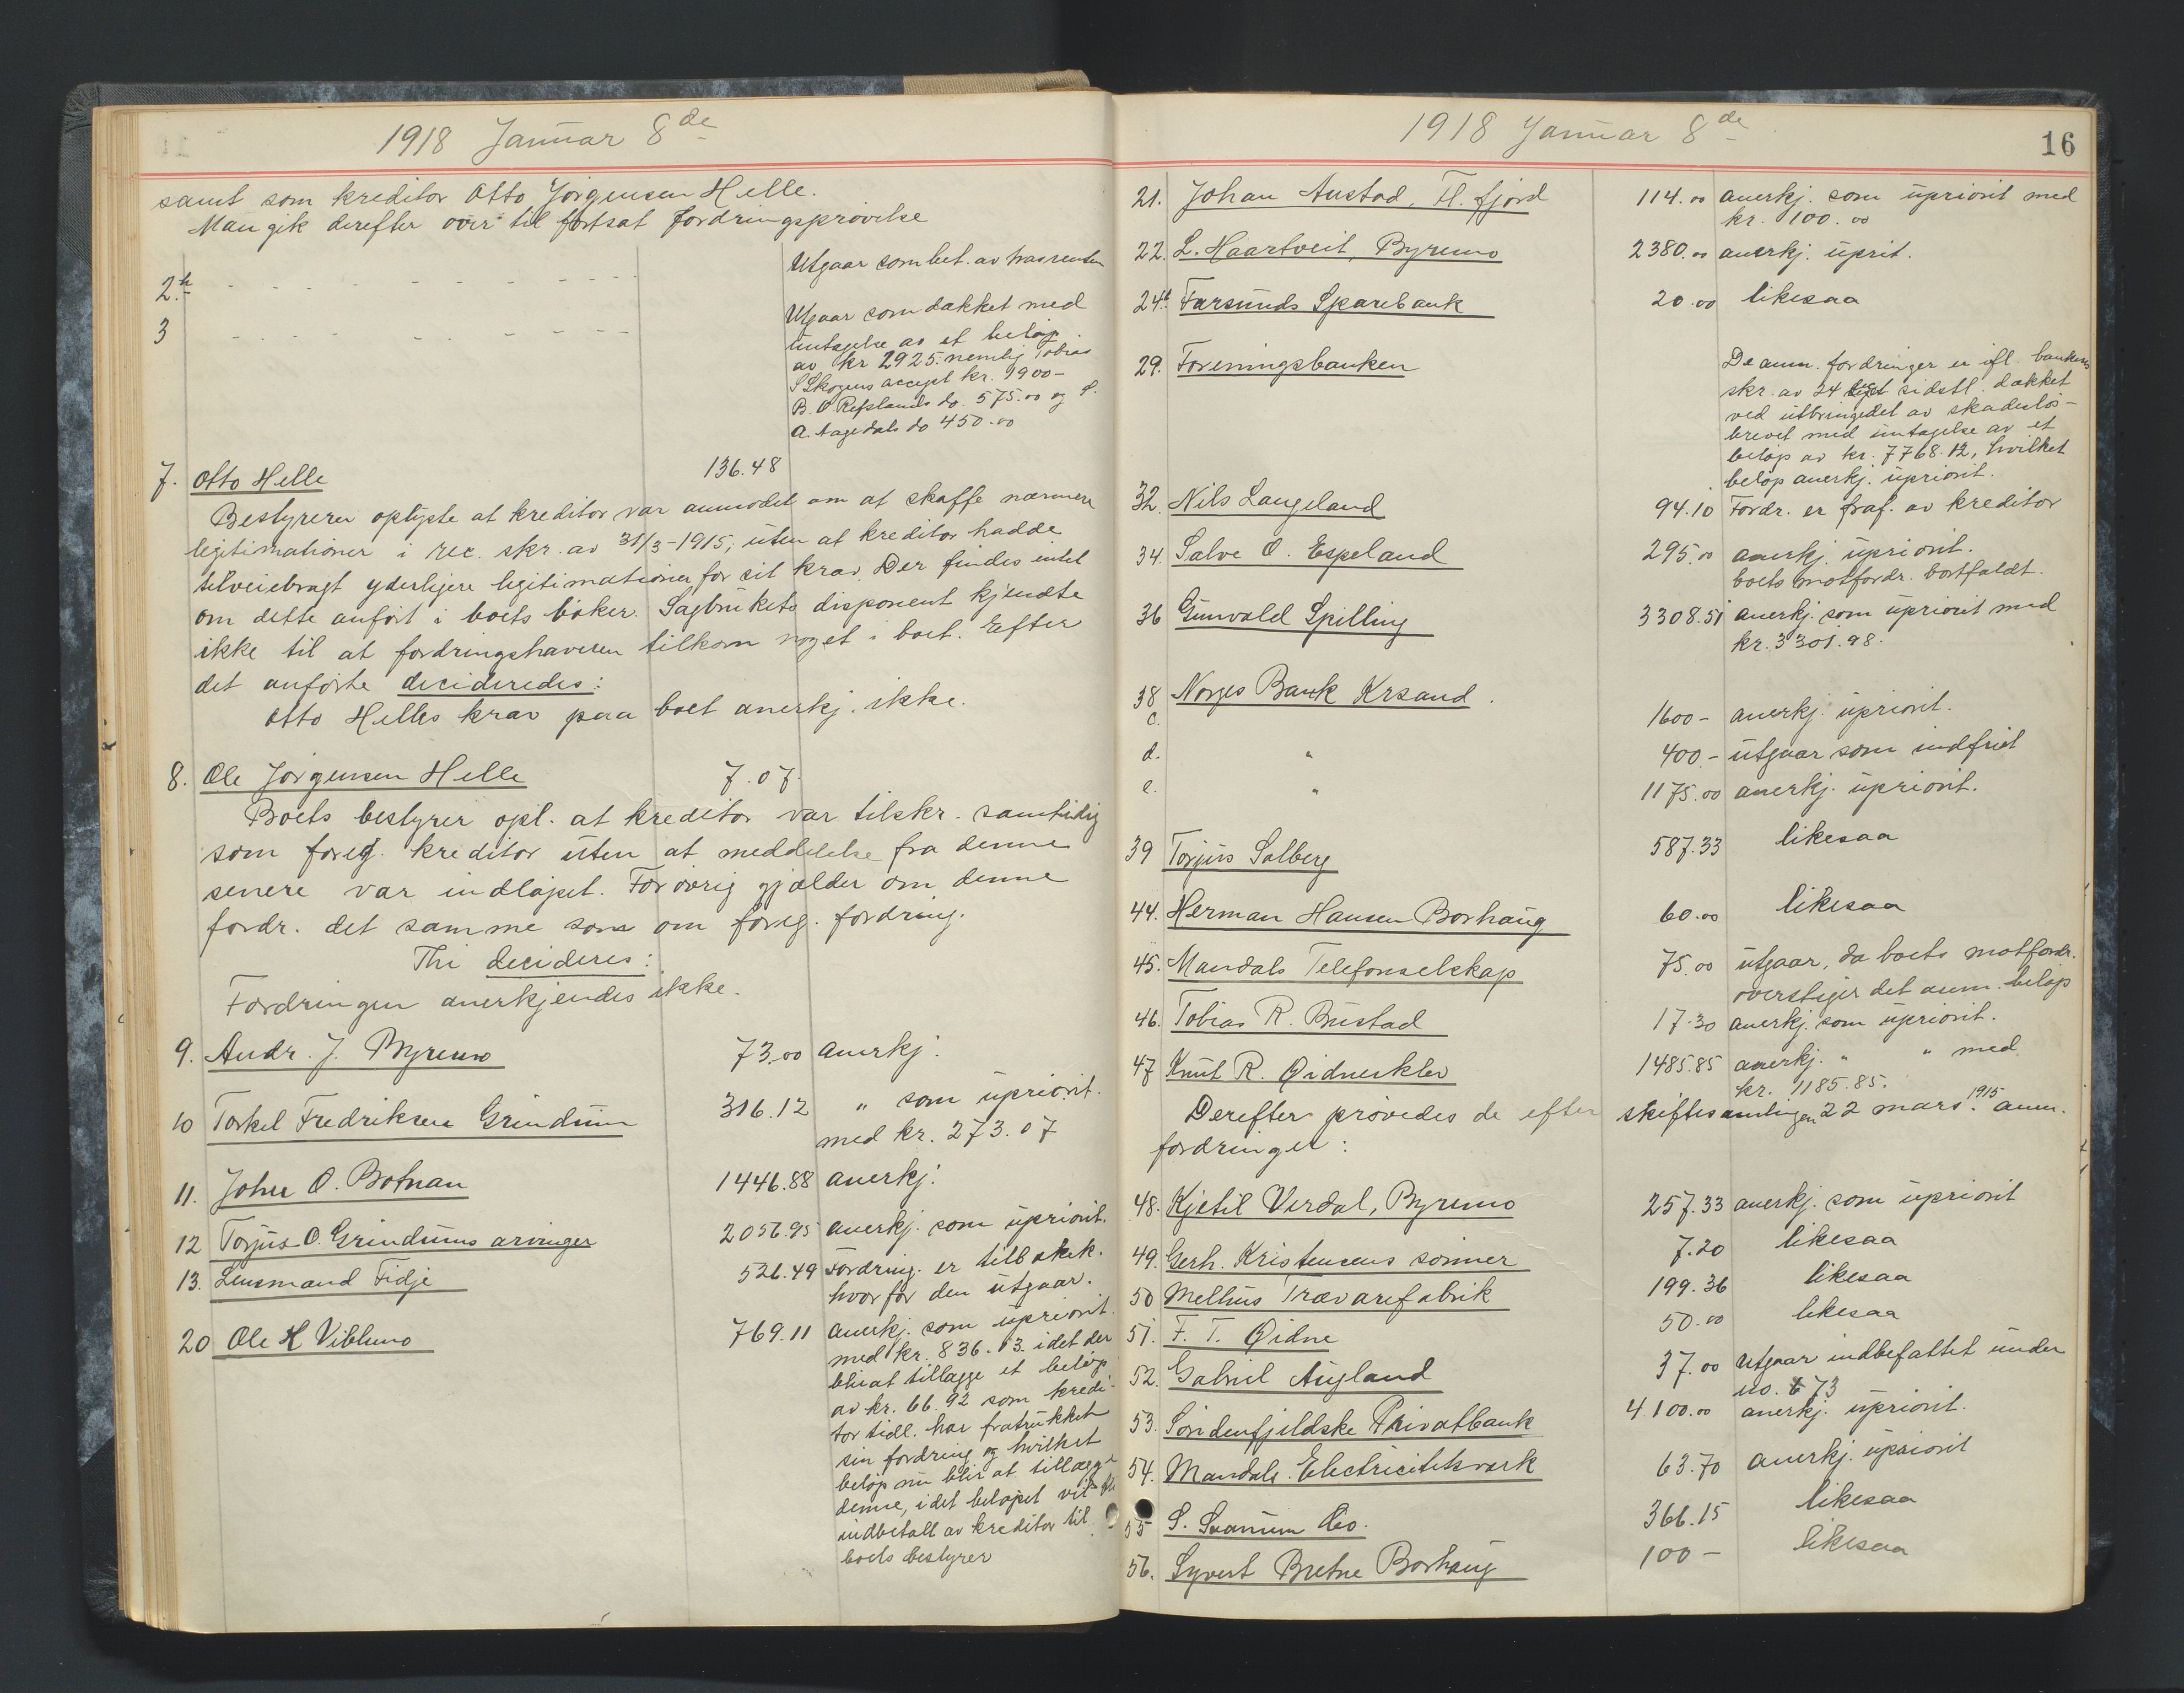 1918 Januar 8de
samt som kreditor Otto Jörgensen Helle.
Man gik derefter over til fortsat fordringsprövelse
2.
Utgaar som bet. av
3
Utgaar som dækket med
undtagelse av et belöp
av kr 2925. nemlig Tobias
S Skogens accept kr. 1900 –
B. O Refslands do. 575.00 og S.
A. Aagedals do 450.00
7. Otto Helle 136.48
Bestyreren oplyste at kreditor var anmodet om at skaffe nærmere
legitimationer i rec. skr. av 31/3-1915, uten at kreditor hadde
tilveiebragt yderligere legitimationer for sit krav. Der findes intet
om dette anfört i boets böker. Sagbrukets disponent kjendte
ikke til at fordringshaveren tilkom noget i boet. Efter
det anförte decideredes:
Otto Helles krav paa boet anerkj. ikke.
8. Ole Jörgensen Helle 7.07.
Boets bestyrer opl. at kreditor var tilskr. samtidig
som foreg. kreditor uten at meddelelse fra denne
senere var indlöpet. Forövrig gjælder om denne
fordr. det samme som om foreg. fordring.
Thi decideres:
Fordringen anerkjendes ikke.
9. Andr. J. Byremo 73.00 anerkj.
10 Torkel Fredriksen Grindum 316.12 " som uprioritˑ
med kr. 273.07
11. John O. Botnan 1446.88 anerkj.
12 Torjus O. Grindums arvinger 2056.95 anerkj. som upriorit.
13. Lensmand Fidje 526.49 Fordring. er tilbakek.
hvorfor den utgaar.
20 Ole H Viblemo 769.11 anerkj. som upriorit
med kr. 836.03. idet der
blir at tillægge et belöp
av kr. 66.92 som kredi-
tor tidl. har fratrukket
sin fordring og hvilket
belöp nu blir at tillægge
denne, idet belöpet vil bli
indbetalt av kreditor til
boets bestyrer
1918 Januar 8de
16
21. Johan Austad, Fl. fjord 114.00 anerkj. som upriorit med
kr. 100.00
22. L. Haartveit, Byremo 2380.00 anerkj. uprit.
24b Farsunds Sparebank 20.00 likesaa
29. Foreningsbanken De anm. fordringer er ifl. bankens
skr. av 24 sidstl. dækket
ved utbringedet av skadeslös-
brevet med undtagelse av et
belöp av kr. 7768.12, hvilket
belöp anerkj. upriorit.
32. Nils Langeland 94.10 Fordr. er fraf. av kreditor
34 Salve O. Espeland 295.00 anerkj. upriorit.
boets motfordr. bortfaldt.
36 Gunvald Spilling 3308.51 anerkj. som upriorit med
kr. 3301.98.
38 Norges Bank Krsand.
c. 1600 – anerkj. upriorit.
d. " 400.– utgaar som indfriet
e. " 1175.00 anerkj. upriorit.
39 Torjus Solberg 587.33 likesaa
44. Herman Hansen Borhaug 60.00 likesaa
45. Mandals Telefonselskap 75.00 utgaar, da boets motfordr.
overstiger det anm. belöp
46. Tobias R. Bustad 17.30 anerkj. som upriorit.
47 Knut R. Öidnesklev 1485.85 anerkj. " " med
kr. 1185.85.
Derefter prövedes de efter skiftesamlingen 22 mars 1915 anm.
fordringer:
48. Kjetil Verdal, Byremo 257.33 anerkj. som upriorit
49. Gerh. Kristensens sönner 7.20 likesaa
50 Melhus Trævarefabrik 199.36 likesaa
51. F. T. Öidne 50.00 likesaa
52. Gabriel Augland 37.00 Utgaar indbefattet under
no. 73
53. Söndenfjeldske Privatbank 4100.00 anerkj. upriorit.
54. Mandals Electricitetsverk 63.70 anerkj. upriorit
55 S. Svanum & Co. 366.15 likesaa
56. Syvert Bretne Borhaug 100 – likesaa